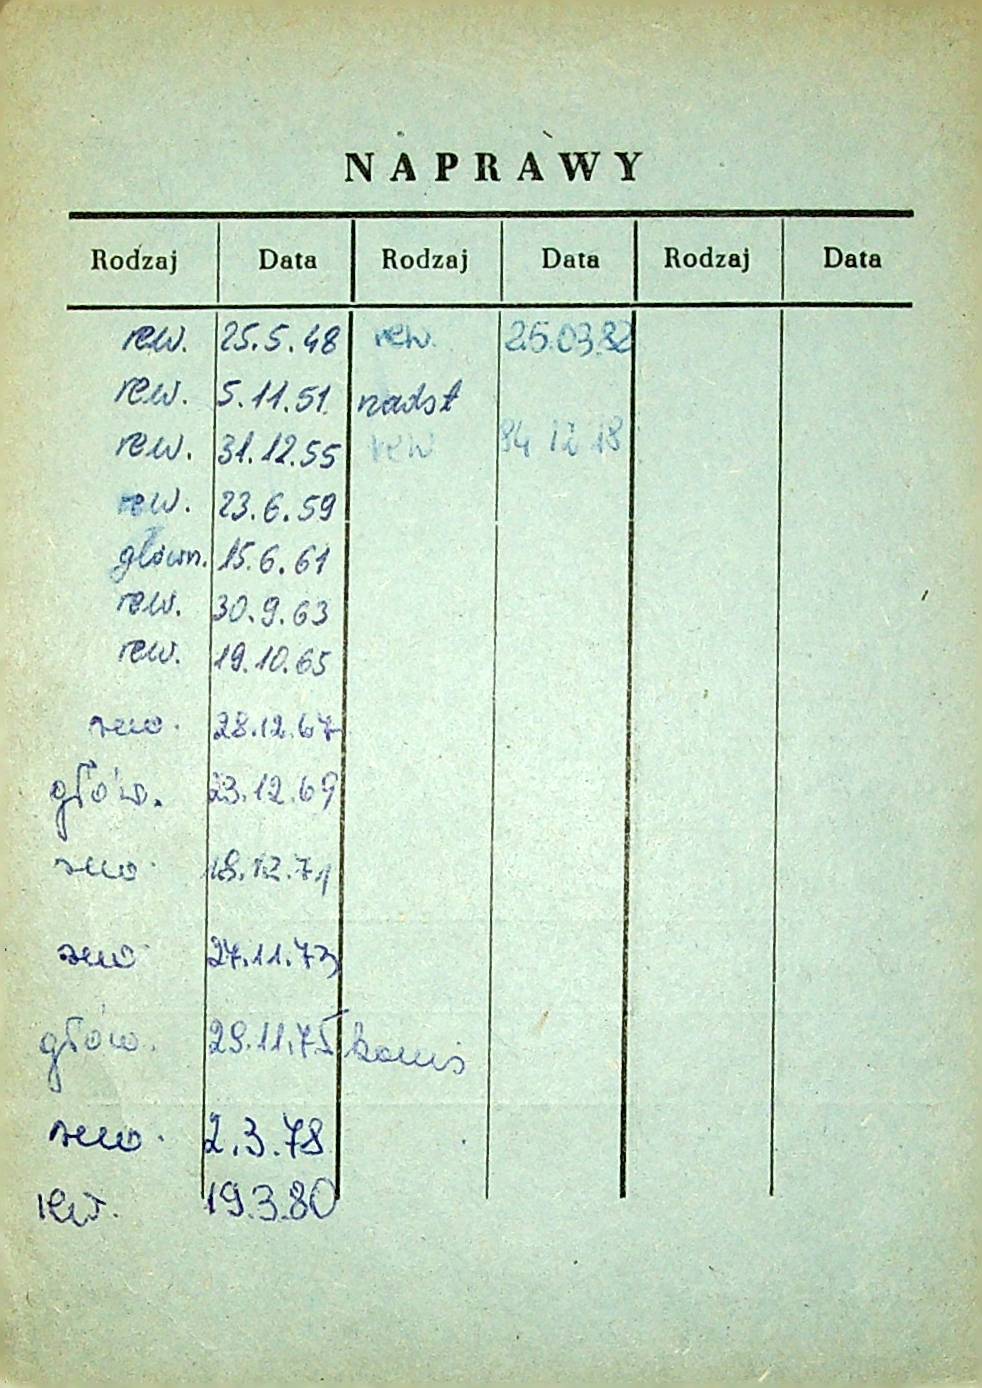 NAPRAWY
Rodzaj Data Rodzaj Data Rodzaj Data
rew. 25.5.48 rew. 25.03.82
rew. 5.11.51 nadst
rew. 31.12.55 rew 84 12 18
rew. 23.6.59
główn. 15.6.61
rew. 30.9.63
rew. 19.10.65
rew. 28.12.67
głów. 23.12.69
rew. 18.12.71
rew 27.11.73
głów. 29.11.75
rew. 2.3.78
rew. 19.3.80